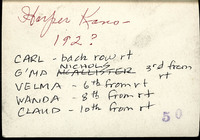 Harper Kans-
192?
CARL - back row rt
NICHOLS
G'MD McALLISTER 3rd from rt
VELMA - 6th from rt
WANDA - 8th from rt
CLAUD - 10th from rt
50